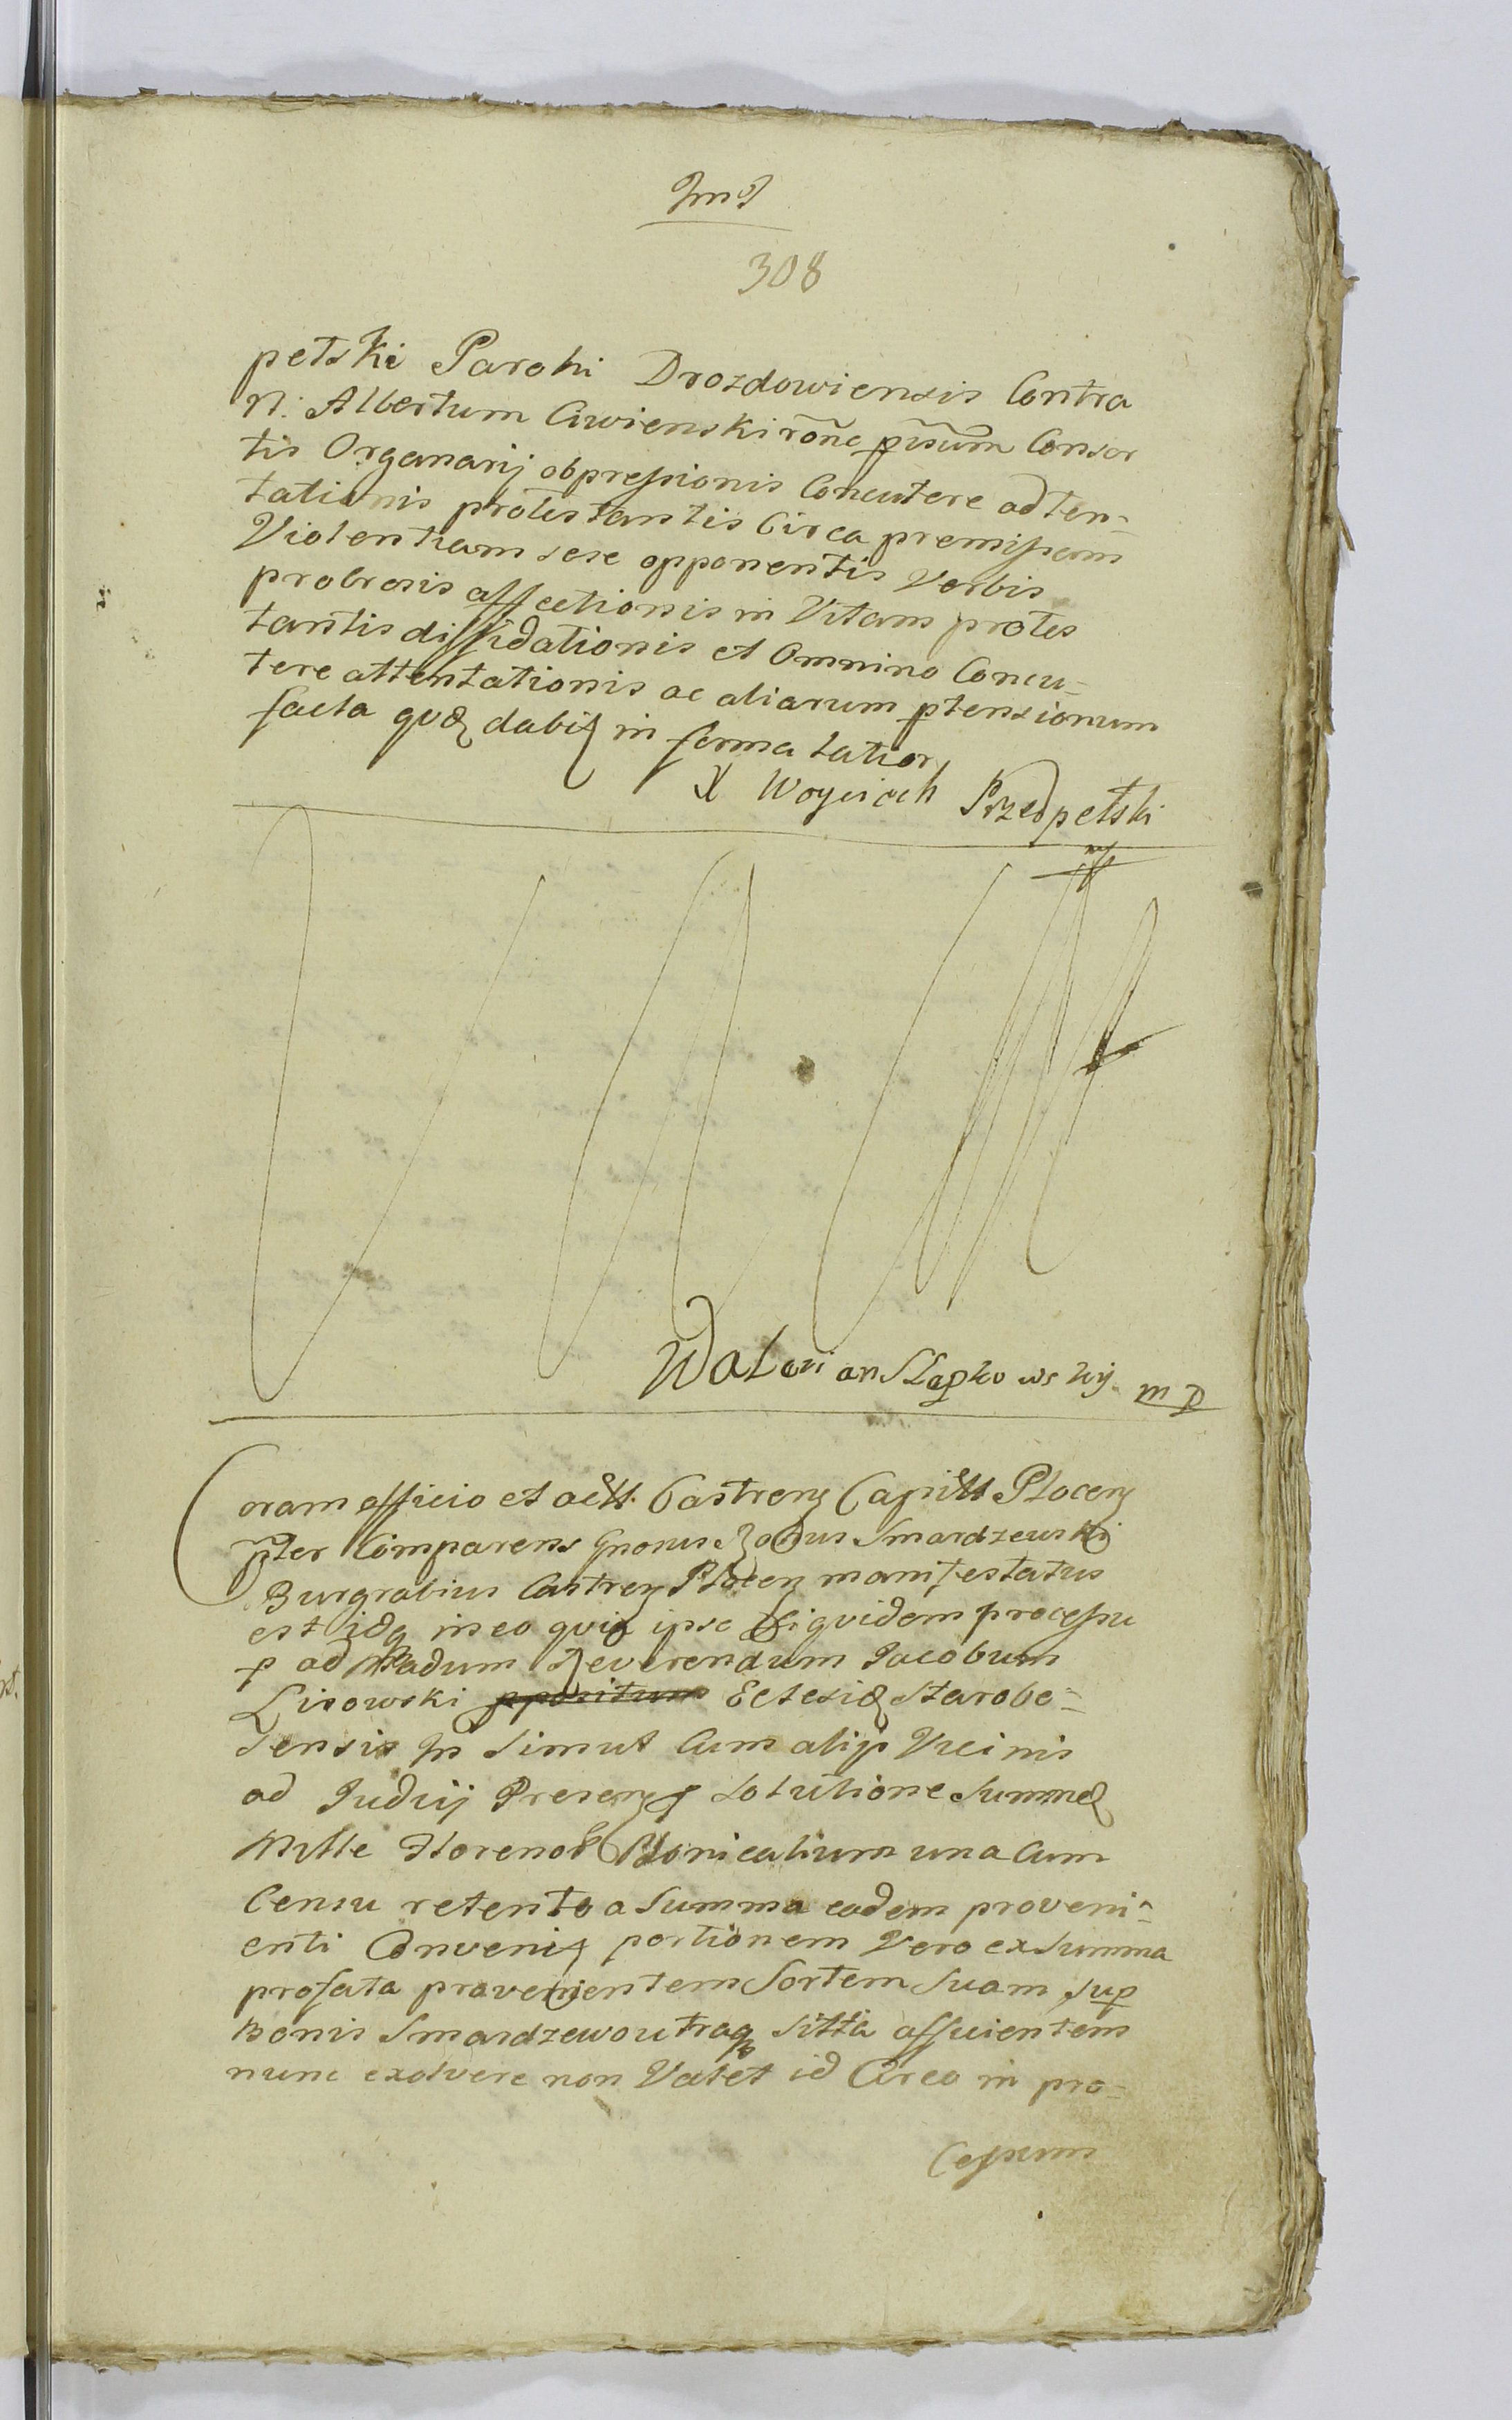 308
petski Parohi Drozdowiensis Contra
N: Albertum Ciwienski rōne Consor
tis Organarij obpressionis Concutere adten-
tationis protestantis Circa premissam
Violentiam sese opponentis Verbis
probrosis affectionis in Vitam protes
tantis diffidationis et Omnino Concu=
tere attentationis ac aliarum ptensionum
facta in forma latior
X Woyciech Przedpetski
Walerian mp
Coram officio et Castren Capitt Plocen
Comparens Smardzewski
Burgrabius Castren Plocen manifestatus
est idq in eo quia ipse siquidem processu
ad Reverendum Jacobum
Lisowski ppositum Eclesiæ Starobo=
sensis simul Cum alijs Vicinis
ad Judicij solutione Summæ
Mille una Cum
Censu retento a Summa eadem proveni=
enti portionem Vero ex Summa
profata provenientem Sortem Suam sup
Bonis Smardzewo utraq sitta afficientem
nunc exolvere non Valet id Circo in pro=
cessum